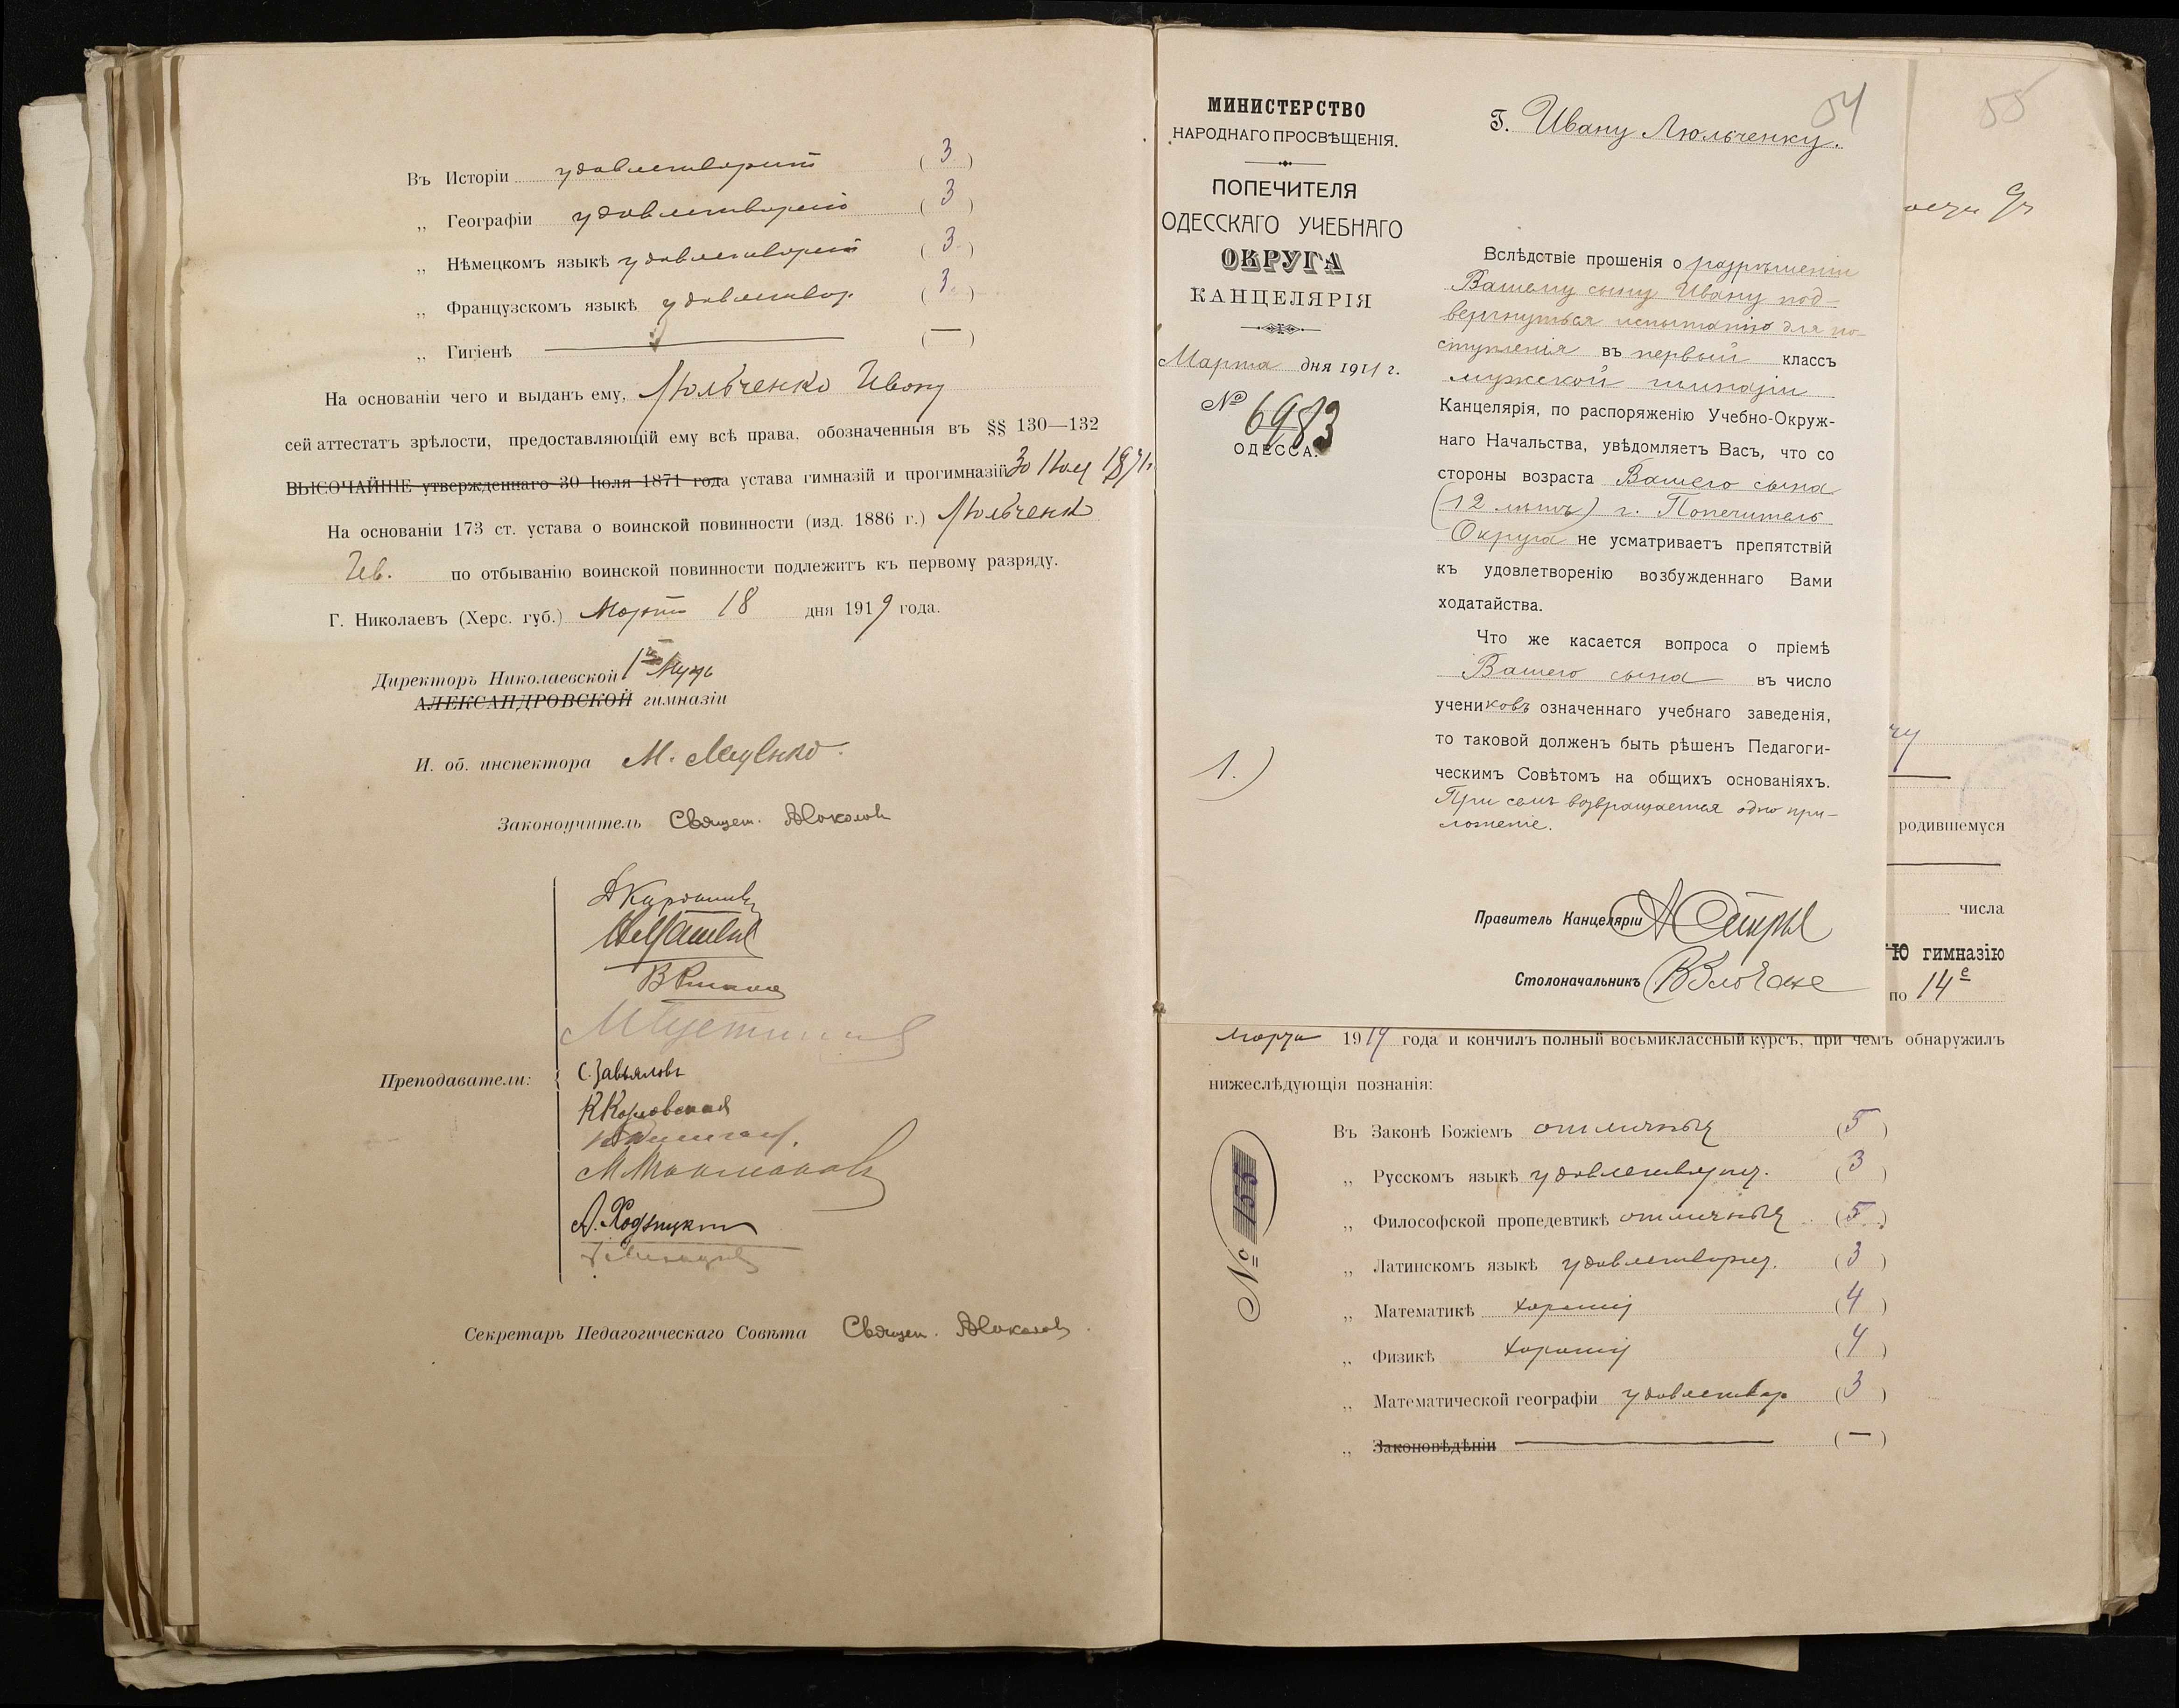 Въ Исторіи удовлетворит (3)
„ Географіи удовлетворит (3)
„ Нѣмецкомъ языкѣ удовлетворит (3)
„ Французскомъ языкѣ удовлетвор. (3)
„ Гигіенѣ — (—)
На основаніи чего и выданъ ему, Люльченко Ивану
сей аттестатъ зрѣлости, предоставляющій ему всѣ права, обозначенныя въ §§ 130—132
ВЫСОЧАЙШЕ утвержденнаго 30 Іюля 1871 года устава гимназій и прогимназій 30 Іюля 1871г.
На основаніи 173 ст. устава о воинской повинности (изд. 1886 г.) Люльченко
Ив. по отбыванію воинской повинности подлежитъ къ первому разряду.
Г. Николаевъ (Херс. губ.) Марта 18 дня 1919 года.
Директоръ Николаевской 1й
АЛЕКСАНДРОВСКОЙ гимназіи
И. об. инспектора М.
Законоучитель Священ. Соколовъ
Преподаватели:
С. Завьяловъ
Секретарь Педагогическаго Совѣта Священ. Соколовъ
МИНИСТЕРСТВО
НАРОДНАГО ПРОСВѢЩЕНІЯ.
ПОПЕЧИТЕЛЯ
ОДЕССКАГО УЧЕБНАГО
ОКРУГА
КАНЦЕЛЯРІЯ
Марта дня 1911 г.
№ 6983
ОДЕССА.
1.)
54
Г. Ивану Люльченку.
Вслѣдствіе прошенія о разрѣшеніи
Вашему сыну Ивану под-
вергнуться испытанію для по-
ступленія въ первый классъ
мужской гимназіи
Канцелярія, по распоряженію Учебно-Окруж-
наго Начальства, увѣдомляетъ Васъ, что со
стороны возраста Вашего сына
(12 лѣтъ) г. Попечитель
Округа не усматриваетъ препятствій
къ удовлетворенію возбужденнаго Вами
ходатайства.
Что же касается вопроса о пріемѣ
Вашего сына въ число
учениковъ означеннаго учебнаго заведенія,
то таковой долженъ быть рѣшенъ Педагоги-
ческимъ Совѣтомъ на общихъ основаніяхъ.
При семъ возвращается одно при-
ложеніе.
Правитель Канцеляріи
Столоначальникъ
55
родившемуся
числа
Ю гимназію
по 14е
марта 1919 года и кончилъ полный восьмиклассный курсъ, при чемъ обнаружилъ
нижеслѣдующія познанія:
№ 155
Въ Законѣ Божіемъ отличныя (5)
„ Русскомъ языкѣ удовлетворит. (3)
„ Философской пропедевтикѣ отличныя (5)
„ Латинскомъ языкѣ удовлетворит. (3)
„ Математикѣ хорошія (4)
„ Физикѣ хорошія (4)
„ Математической географіи удовлетвор (3)
„ Законовѣдѣніи — (—)